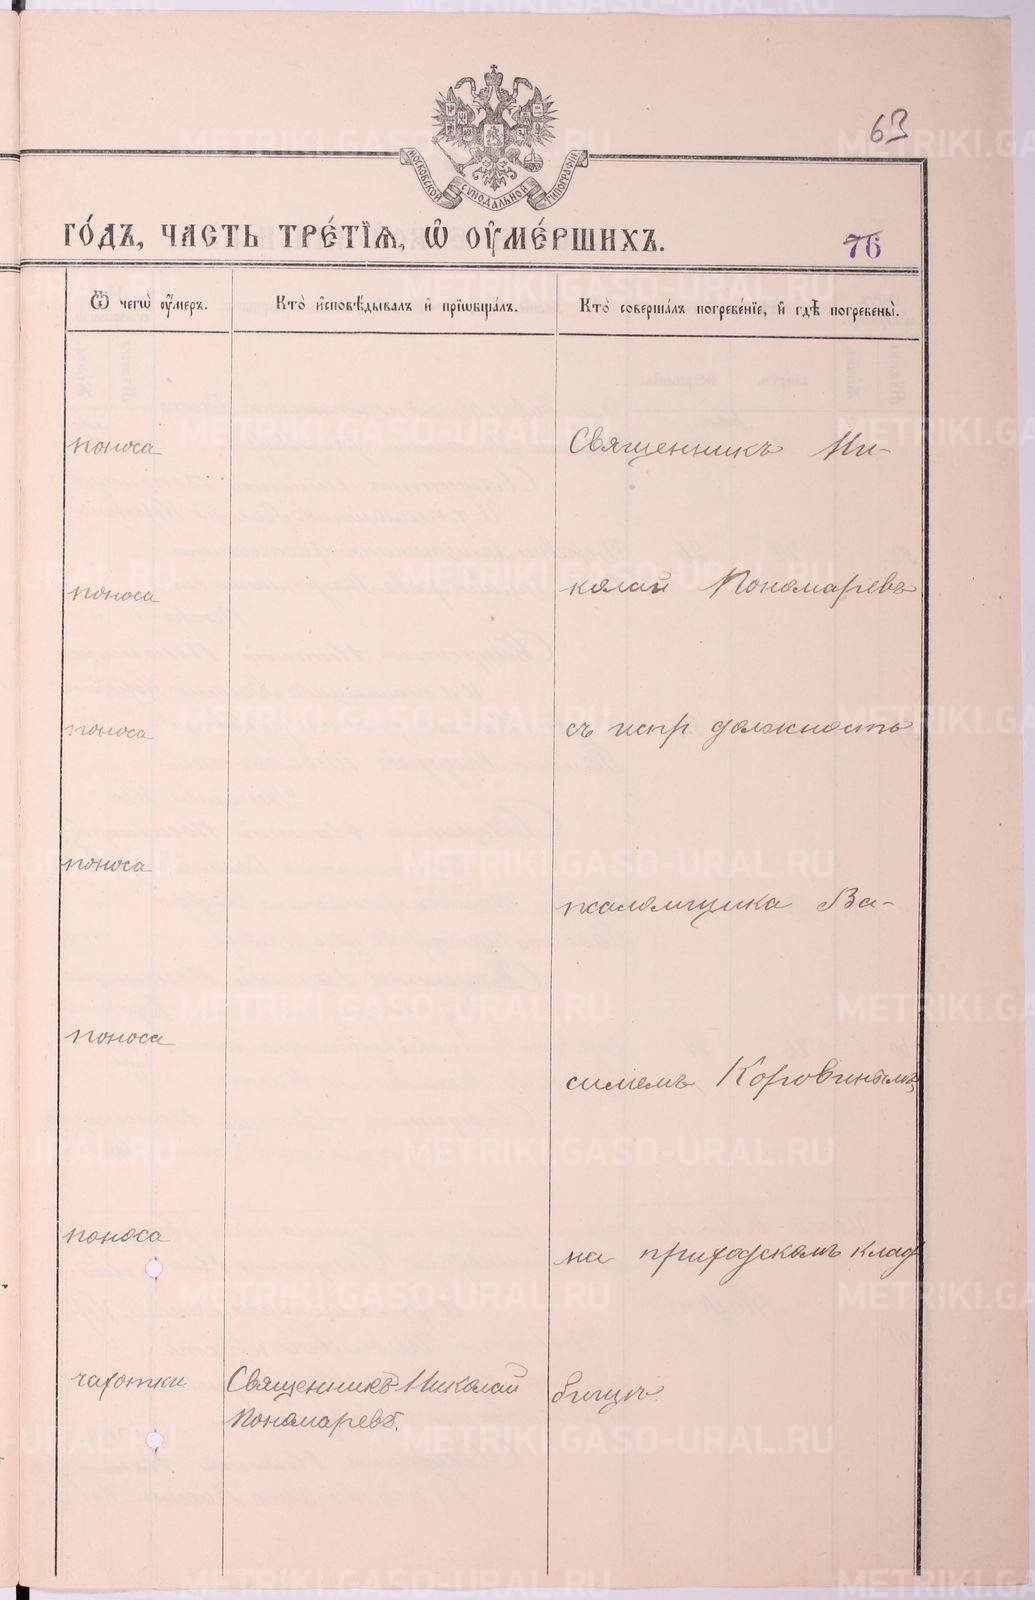 63
МОСКОВСКОЙ СѴНОДАЛЬНОЙ ТИПОГРАФІИ
ГО́ДЪ, ЧАСТЬ ТРЕ́ТІѦ, Ѡ҆ ОУ҆МЕ́РШИХЪ.
76
Ѿ чегѡ̀ оу҆́меръ.
Кто̀ и҆сповѣ́дывалъ и҆ прїѡбща́лъ.
Кто̀ соверша́лъ погребе́нїе, и҆ гдѣ̀ погребены̀.
поноса
Священникъ Ни-
поноса
колай Пономаревъ
поноса
съ испр должность
поноса
псаломщика Ва-
поноса
силіемъ Коровинымъ,
поноса
на приходскомъ клад
чахотки
Священникъ Николай
Пономаревъ.
бищѣ
METRIKI.GASO-URAL.RU